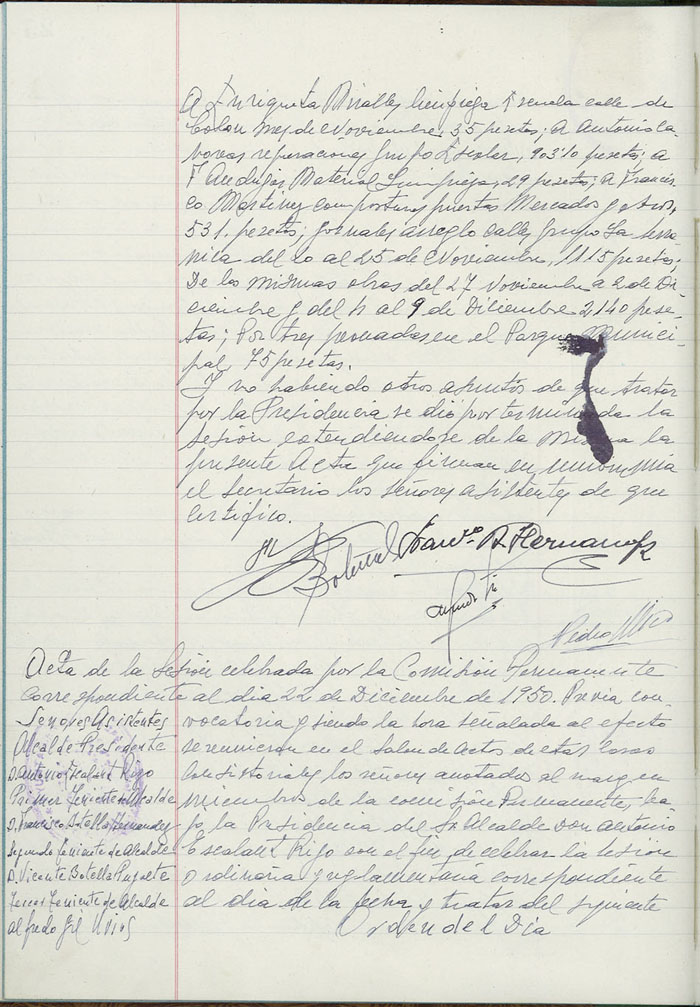 A Enriqueta Miralles limpieza Escuela calle de
Colon mes de Noviembre, 35 pesetas; A Antonio La-
reparaciones Grupo Escolar, 903'10 pesetas; a
Material Limpieza, 29 pesetas; a Francis-
co Martinez composturas puertas Mercados y otros,
531. pesetas; jornales arreglo calles Grupo La
del 20 al 25 de Noviembre, 1115 pesetas;
De las mismas obras del 27 Noviembre a 2 de Di-
ciembre y del 4 al 9 de Diciembre 2140 pese-
tas; Por tres jornadas en el Parque Munici-
pal, 75 pesetas.
Y no habiendo otros asuntos de que tratar
por la Presidencia se dió por terminada la
sesión extendiendose de la misma la
presente Acta que firman en
el secretario los señores asistentes de que
certifico.
Hernandez
Pedro
Acta de la Sesión celebrada por la Comisión Permanente
correspondiente al dia 22 de Diciembre de 1950. Previa con-
Señores Asistentes
Alcalde Presidente
D. Antonio Escalant Rigo
Primer Teniente de Alcalde
D. Francisco Botella Hernandez
Segundo Teniente de Alcalde
D. Vicente Botella
Tercer Teniente de Alcalde
Alfredo Gil
vocatoria y siendo la hora señalada al efecto
se reunieron en el Salon de Actos de estas Casas
Consistoriales los señores anotados al margen
miembros de la comisión Permanente, ba-
jo la Presidencia del Sr. Alcalde Don Antonio
Escalant Rigo con el fin de celebrar la sesion
Ordinaria y reglamentaria correspondiente
al dia de la fecha y tratar del siguiente
Orden del Dia